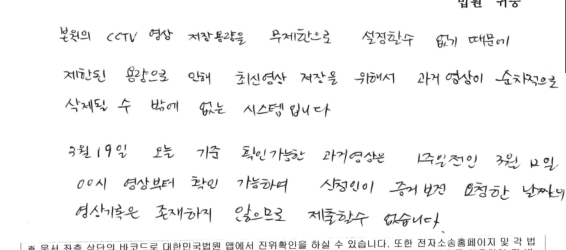 법원 귀중
본원의 CCTV 영상 저장용량을 무제한으로 설정할수 없기 때문에
제한된 용량으로 인해 최신영상 저장을 위해서 과거영상이 순차적으로
삭제될 수 밖에 없는 시스템입니다
3월19일 오늘 기준 확인가능한 과거영상은 1주일전인 3월 12일
00시 영상부터 확인 가능하며 신청인이 증거보전 요청한 날짜의
영상기록은 존재하지 않으므로 제출할수 없습니다.
※ 문서 좌측 상단의 바코드로 대한민국법원 앱에서 진위확인을 하실 수 있습니다. 또한 전자소송홈페이지 및 각 법